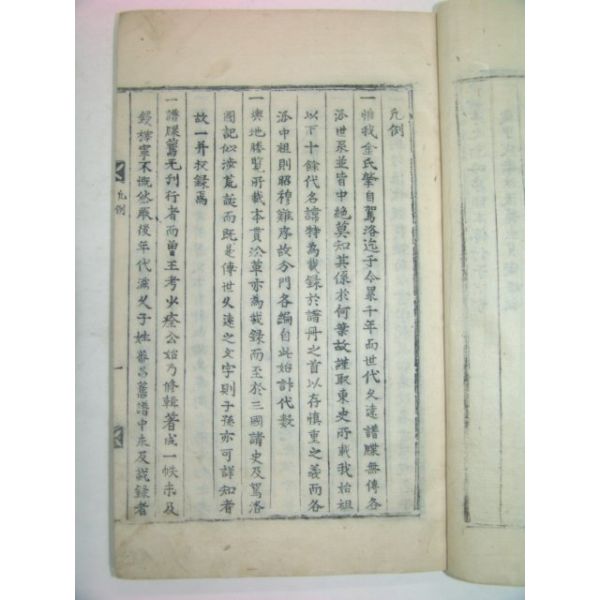 凡例
一惟我金氏肇自駕洛迄于今累千年而世代久遠譜牒無傳各
派世系並皆中絶莫知其係於何葉故謹取東史所載我始祖
以下十餘代名諱特為載錄於譜冊之首以存慎重之義而各
派中祖則昭穆難序故分門各編自此始計代數
一輿地勝覽所載本貫沿革亦為載錄而至於三國諸史及駕洛
國記似涉荒誕而既是傳世久遠之文字則子孫亦可詳知者
故一并收錄焉
一譜牒舊无刊行者而曾王考少痊公始乃修輯著成一帙未及
鋟梓寧不慨然厥後年代滋久子姓蕃昌舊譜中未及載錄者
凡例
一